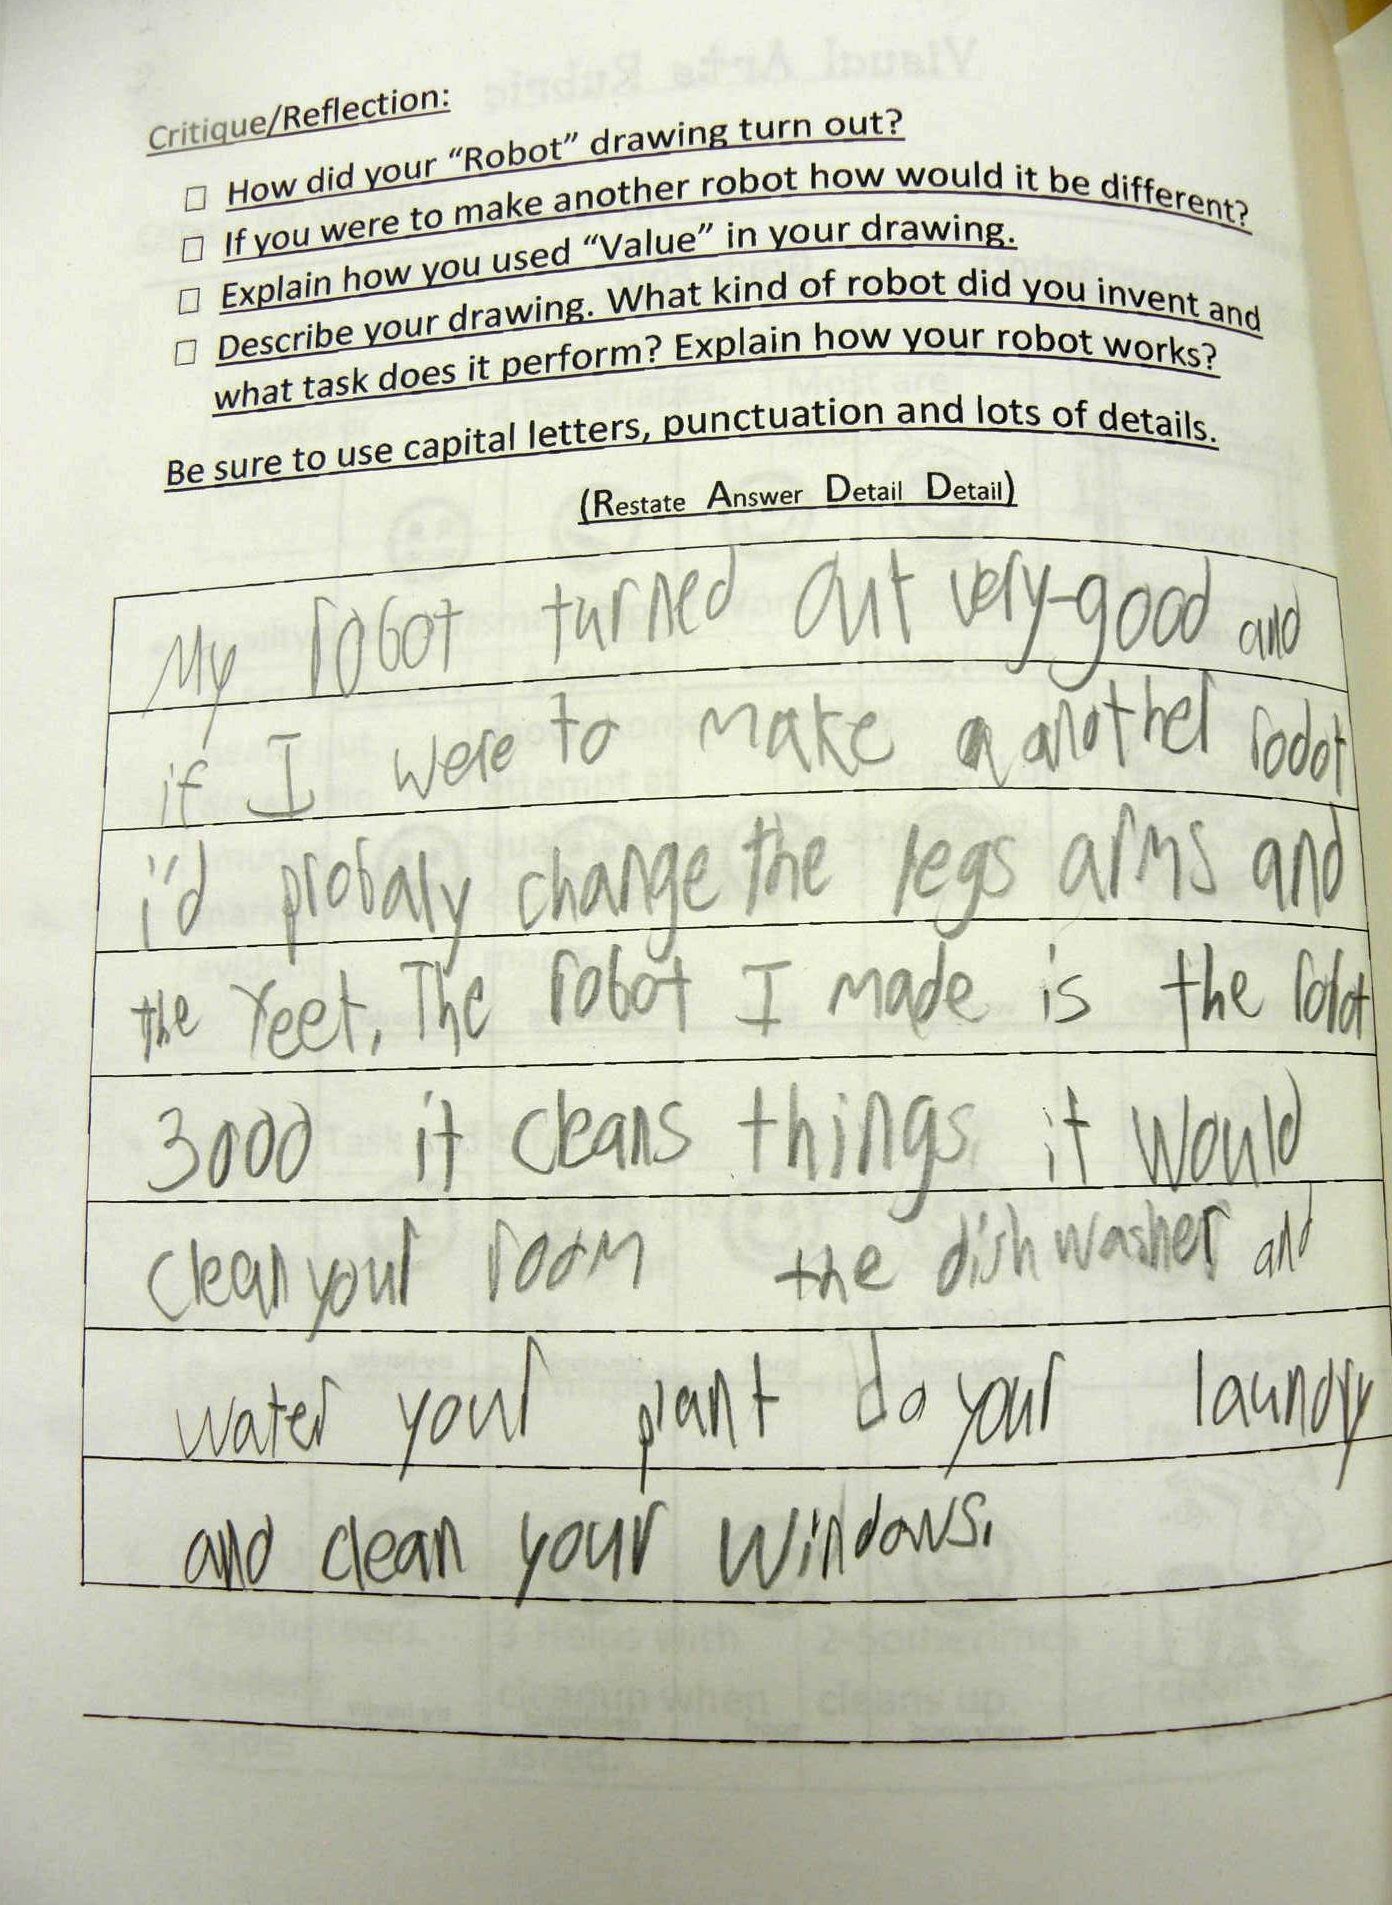 Critique/Reflection:
☐ How did your “Robot” drawing turn out?
☐ If you were to make another robot how would it be different?
☐ Explain how you used “Value” in your drawing.
☐ Describe your drawing. What kind of robot did you invent and
what task does it perform? Explain how your robot works?
Be sure to use capital letters, punctuation and lots of details.
(Restate Answer Detail Detail)
My robot turned out very-good and
if I were to make a another rodot
i'd probaly change the legs arms and
the feet. The robot I made is the robot
3000 it cleans things it would
clean your room the dish washer and
water your plant do your laundry
and clean your windows.